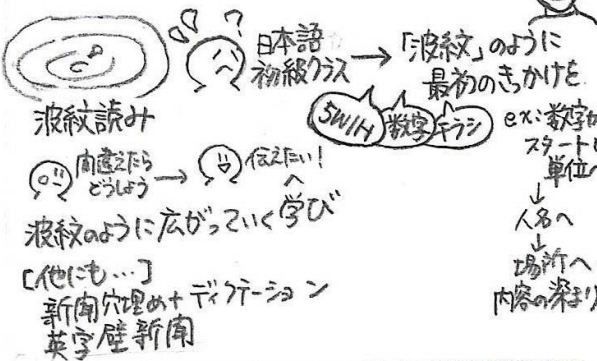 波紋読み
日本語
初級クラス
→「波紋」のように
最初のきっかけを
5W1H 数字 チラシ
ex:数字か
スタートし
単位へ
↓
人名へ
↓
場所へ
内容の深まり
間違えたら
どうしよう
→
伝えたい!
波紋のように広がっていく学びへ
[他にも…]
新聞穴埋め+ディクテーション
英字壁新聞